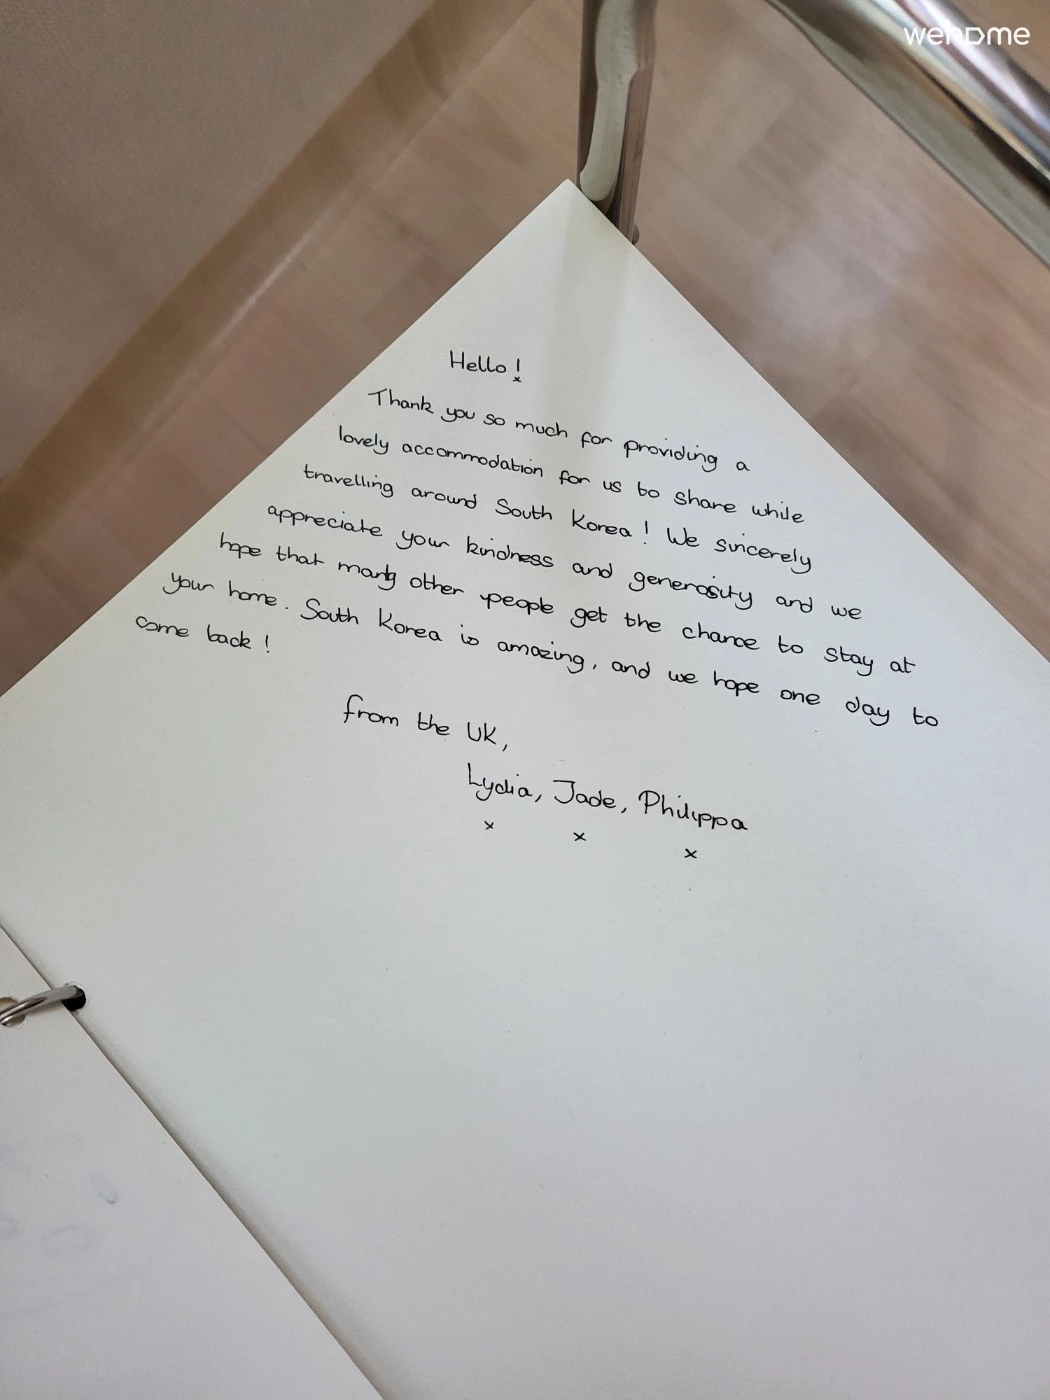 wehome
Hello!
Thank you so much for providing a
lovely accommodation for us to share while
travelling around South Korea! We sincerely
appreciate your kindness and generosity and we
hope that many other people get the chance to stay at
your home. South Korea is amazing, and we hope one day to
come back!
from the UK,
Lydia, Jade, Philippa
x x x